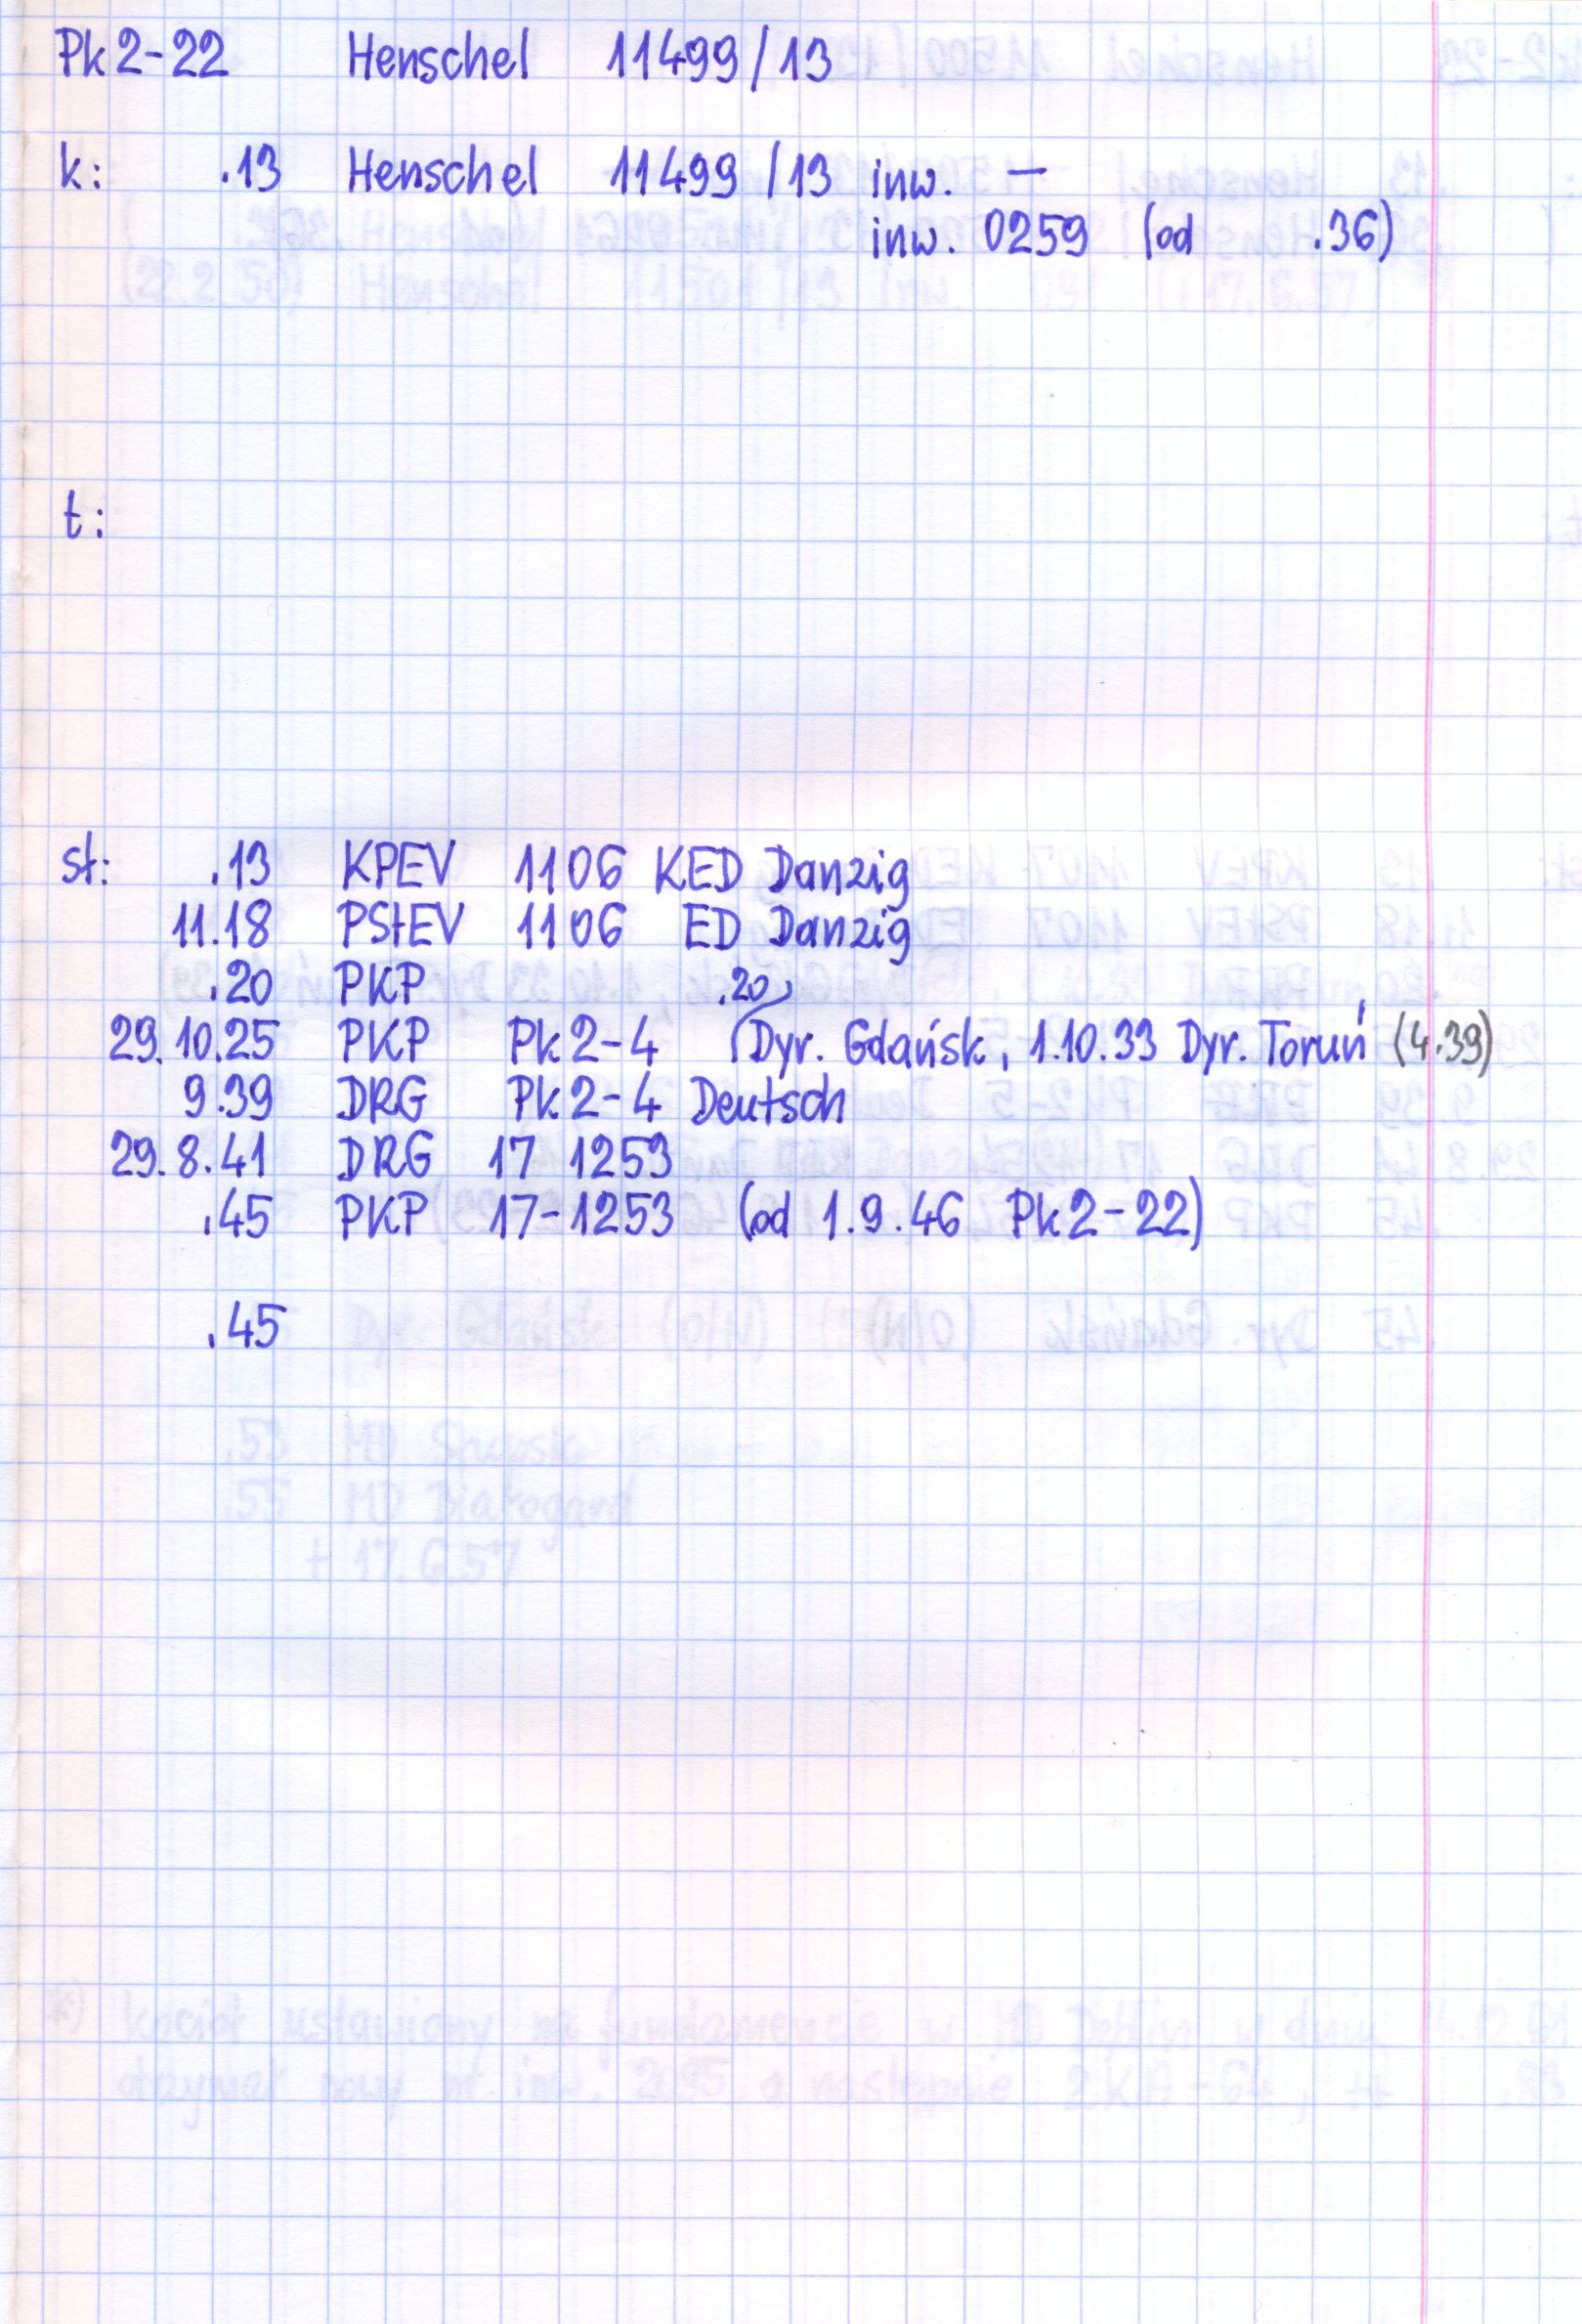 Pk2-22 Henschel 11499/13
k: .13 Henschel 11499/13 inw. —
inw. 0259 (od .36)
t:
st: .13 KPEV 1106 KED Danzig
11.18 PStEV 1106 ED Danzig
.20 PKP .20
29.10.25 PKP Pk2-4 (Dyr. Gdańsk, 1.10.33 Dyr. Toruń (4.39)
9.39 DRG Pk2-4 Deutsch
29.8.41 DRG 17 1253
.45 PKP 17-1253 (od 1.9.46 Pk2-22)
.45